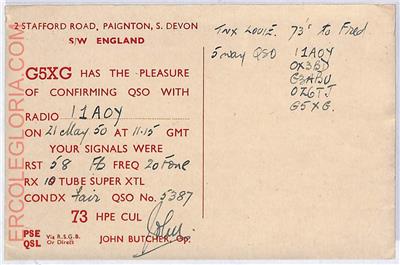 2 STAFFORD ROAD, PAIGNTON, S. DEVON
S/W ENGLAND
G5XG HAS THE PLEASURE
OF CONFIRMING QSO WITH
RADIO I1AOY
ON 21 May 50 AT 11.15 GMT
YOUR SIGNALS WERE
RST 58 Fb FREQ 20 Fone
RX 10 TUBE SUPER XTL
CONDX Fair QSO No. 5387
73 HPE CUL
PSE QSL Via R.S.G.B. Or Direct
John
JOHN BUTCHER, Op.
TNX LOUIE. 73's to Fred
5 way QSO I1AOY
OX3BD
G3ABU
OZ6TJ
G5XG.
ERCOLEGLORIA.COM